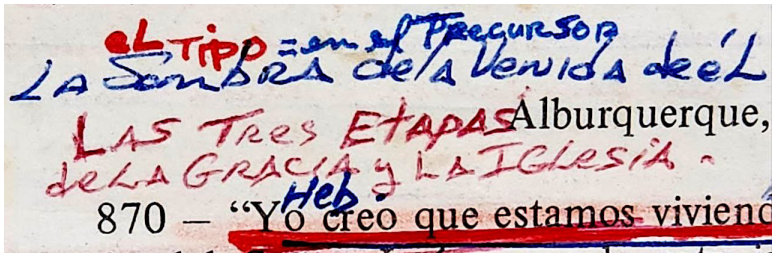 eL TIPO = en el PRECURSOR
LA SOMBRA de LA Venida de éL
LAS TRes EtAPAS Alburquerque,
de LA GRACIA y LA IGlesia.
Heb.
870 – “Yo creo que estamos viviend